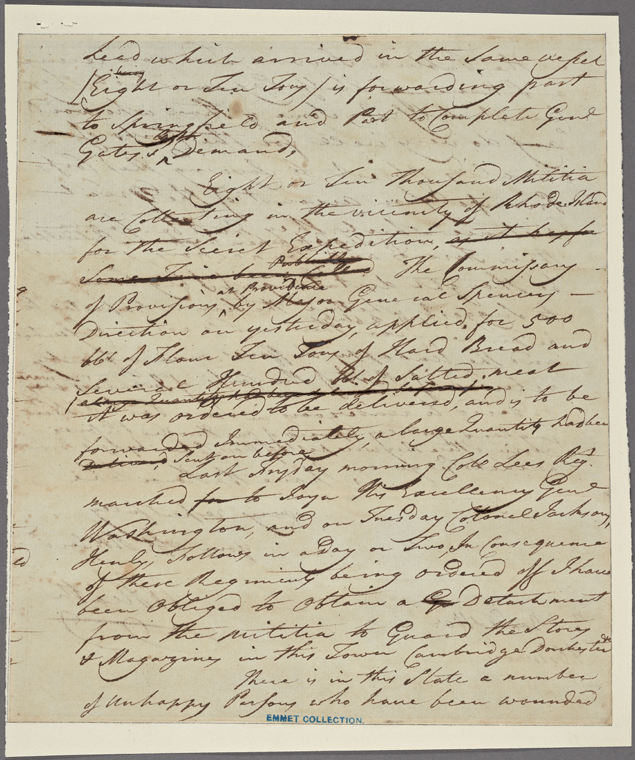 Lead which arrived in the same vessel
being
(Eight or Ten Tons) is forwarding part
to Springfield and Part to Complete Genl
Gates's Demand,
Eight or Ten thousand Militia
are Collecting in the vicinity of Rhode Island
for the Secret Expedition,
The Commissary
at Providence
of Provisions by Major General Spencers
Direction on yesterday, applied for 500
bbl of Flour Ten Tons of Hard Bread and
Several Hundred bbl of Salted meat
it was ordered to be delivered, and is to be
forwarded Immediately a large Quantity had been
sent on before
Last Fryday morning Colo Lees Regt
marched for to Joyn His Excellency Genl
Washington, and on Tuesday Colonel Jackson,
Henly, follows in a day or Two, In Consequence
of these Regiments being ordered off I have
been Obliged to Obtain a Detachment
from the militia to Guard the Stores
& Magazines in this Town Cambridge Dorchester
There is in this State a number
of unhappy Persons who have been wounded
EMMET COLLECTION.